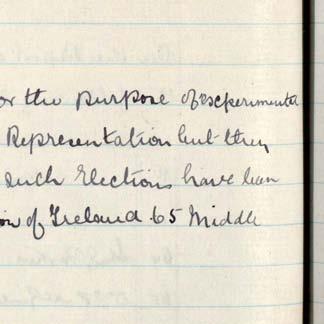 or the purpose of experimental
Representation but they
such Elections have been
ion of Ireland 65 Middle